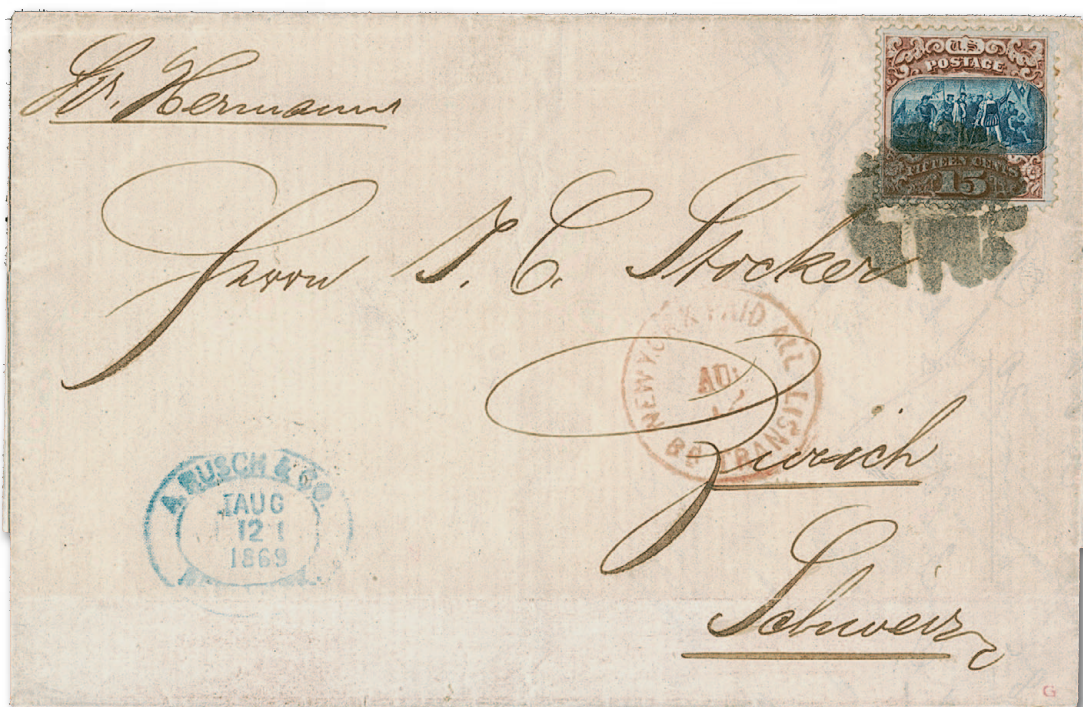 Str. Hermann
U.S.
POSTAGE
FIFTEEN CENTS
15
Herrn J. C. Stocker
NEW YORK PAID ALL
AUG
BR TRANSIT
Zürich
A. RUSCH & CO.
AUG
12
1869
Schweiz
G